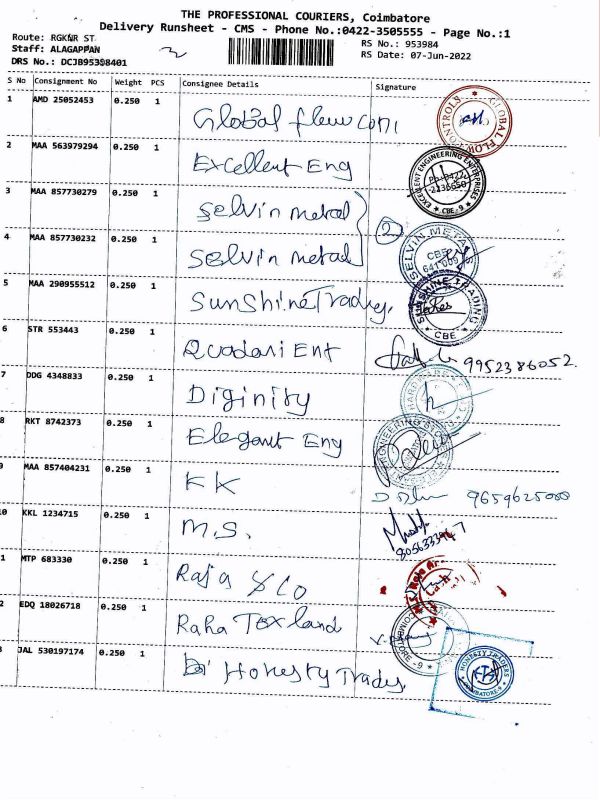 THE PROFESSIONAL COURIERS, Coimbatore
Delivery Runsheet - CMS - Phone No.:0422-3505555 - Page No.:1
Route: RGKNR ST
Staff: ALAGAPPAN
DRS No.: DCJB95398401
RS No.: 953984
RS Date: 07-Jun-2022
S No Consignment No Weight PCS Consignee Details Signature
1 AMD 25052453 0.250 1 Global flow con
GLOBAL FLOW CONTROLS
2 MAA 563979294 0.250 1 Excellent Eng
EXCELLENT ENGINEERING ENTERPRISES
CBE-9
3 MAA 857730279 0.250 1 Selvin metal
2
4 MAA 857730232 0.250 1 Selvin metal
SELVIN METAL
CBE
641 009
5 MAA 290955512 0.250 1 SunShine Trading
SUNSHINE TRADING
CBE
6 STR 553443 0.250 1 Ent
9952386052.
7 DDG 4348833 0.250 1 Diginity
HARDWARE
8 RKT 8742373 0.250 1 Elegant Eng
ENGINEERING
9 MAA 857404231 0.250 1 KK
9659625000
10 KKL 1234715 0.250 1 M.S.
1 MTP 683330 0.250 1 Raja & Co
Raja
2 EDQ 18026718 0.250 1 Raha Tex land
COIMBATORE - 9
3 JAL 530197174 0.250 1 Honesty Trades
HONESTY TRADERS
COIMBATORE-9